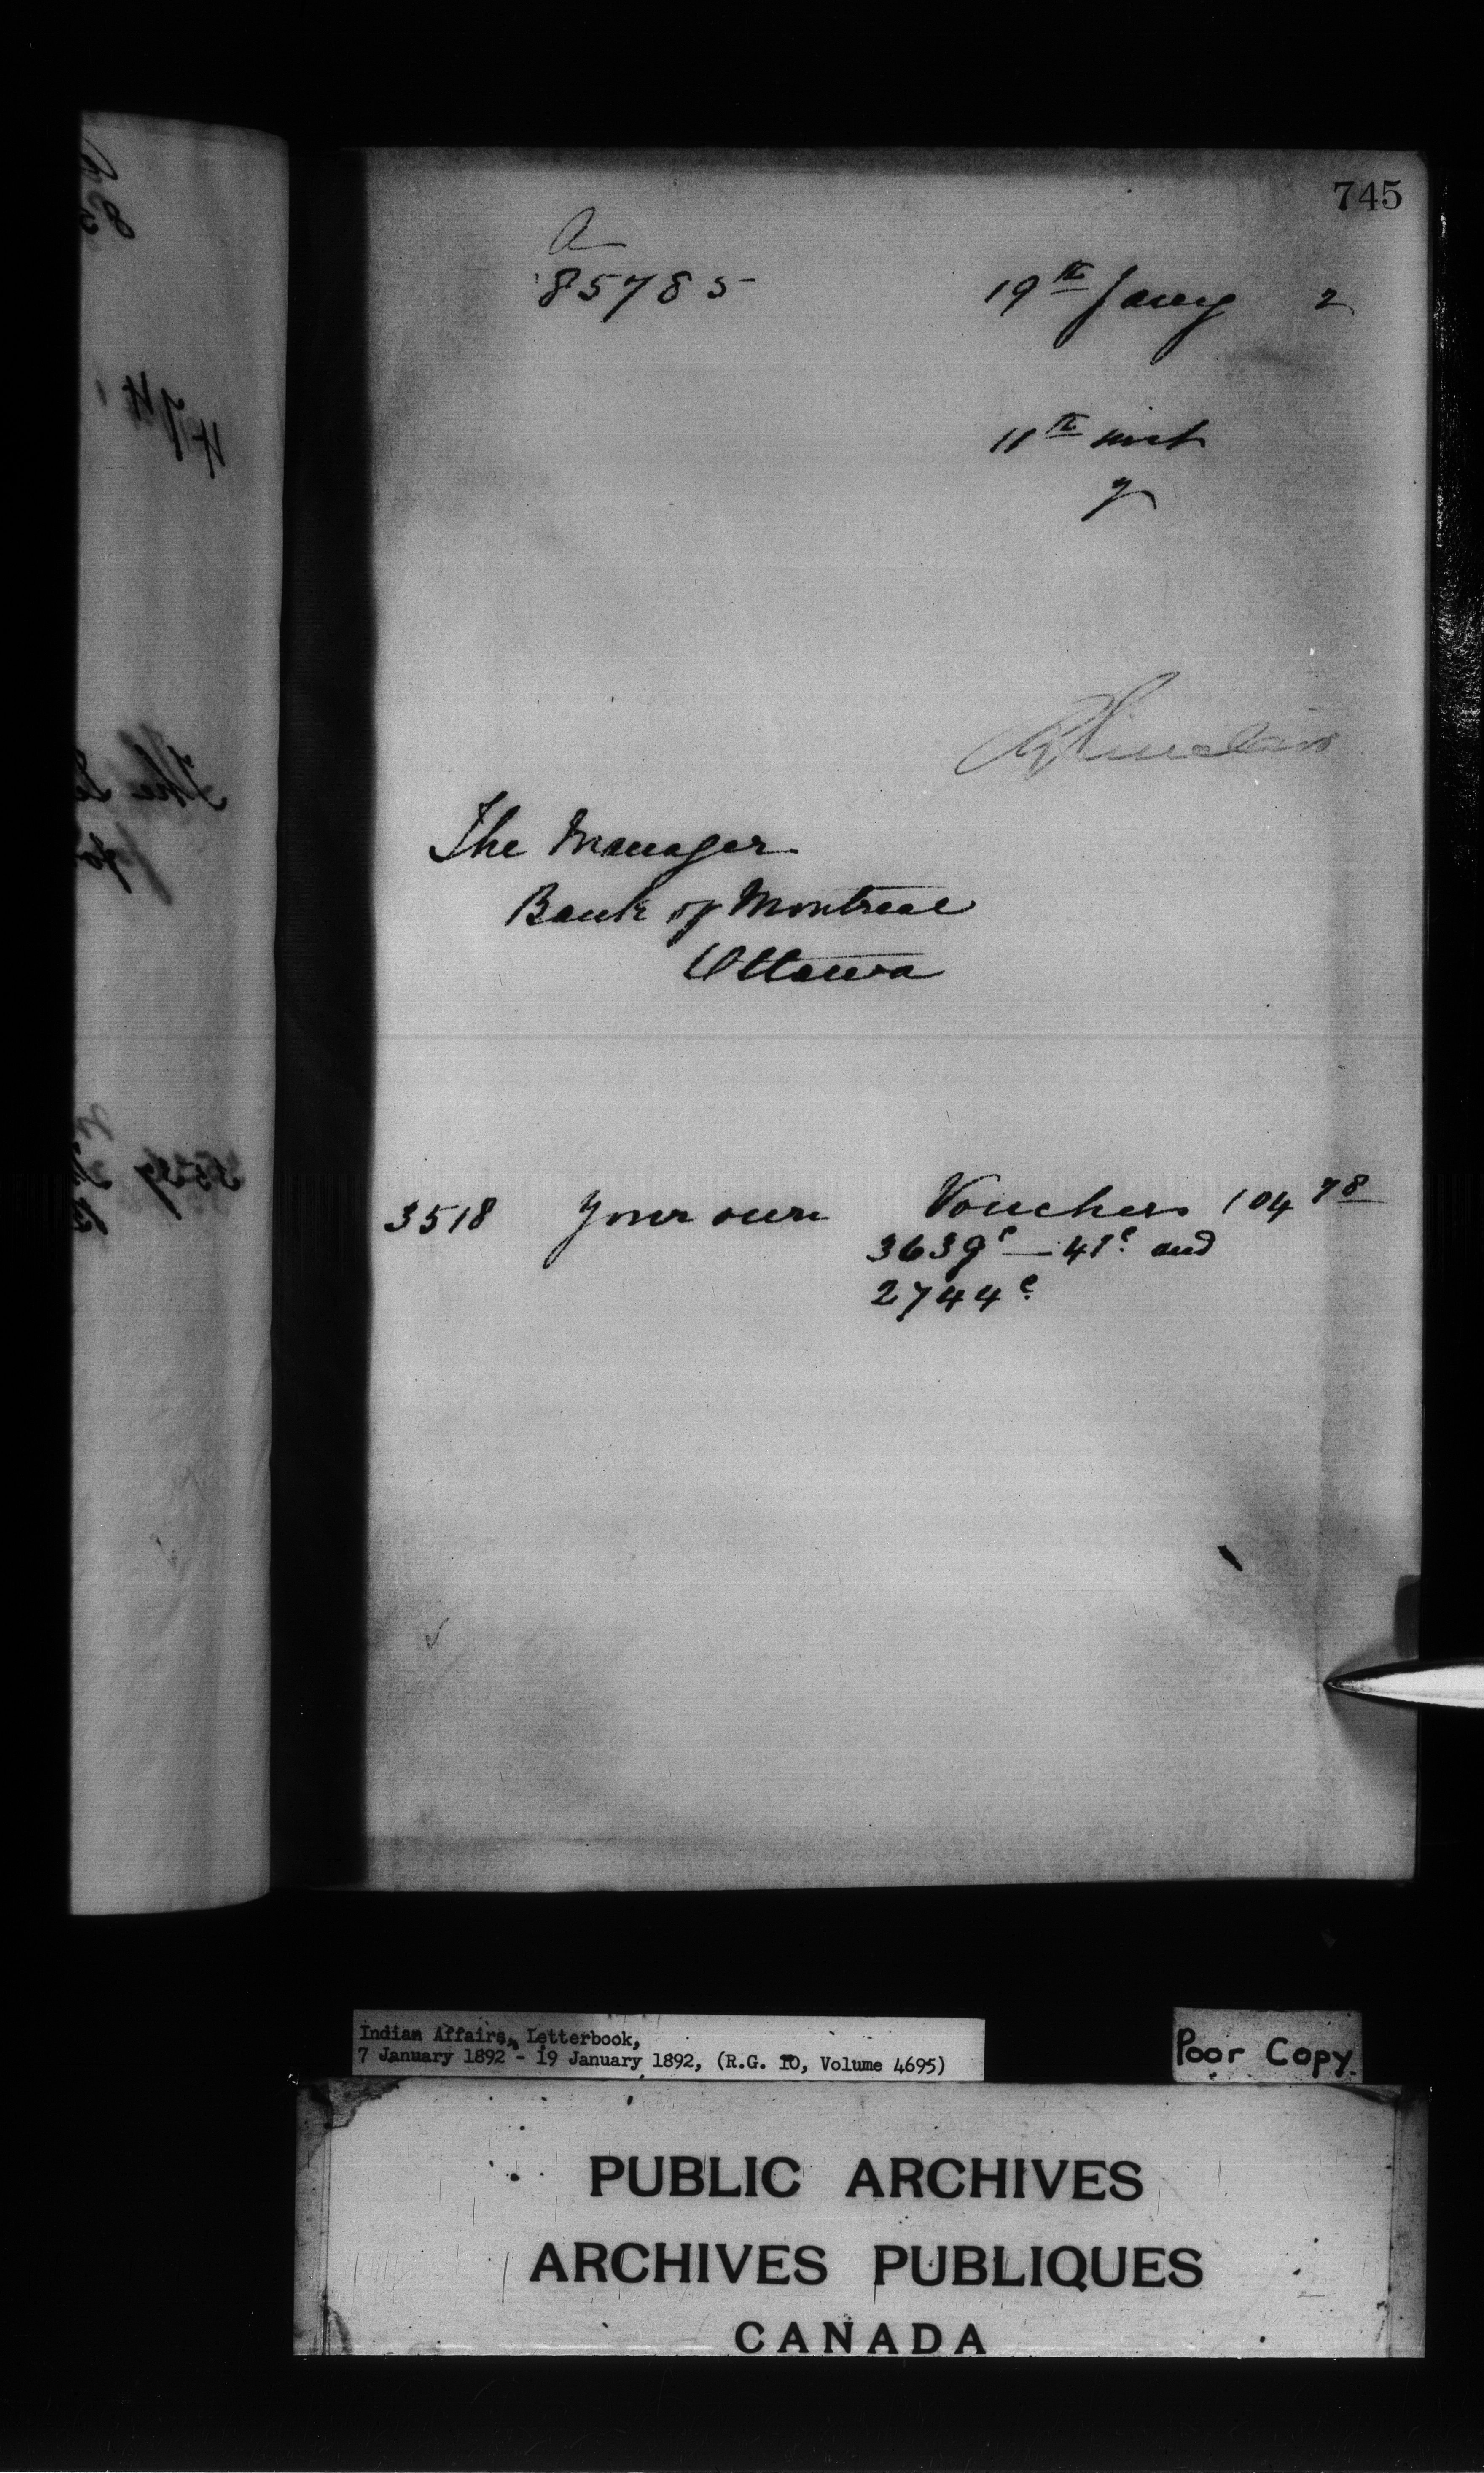 745
a
85785 19th Jany 2
11th inst
The Manager
Bank of Montreal
Ottawa
3518 Your own Vouchers 104 78
3639c — 41c. and
2744c.
Indian Affairs, Letterbook,
7 January 1892 - 19 January 1892, (R.G. 10, Volume 4695)
Poor Copy.
PUBLIC ARCHIVES
ARCHIVES PUBLIQUES
CANADA